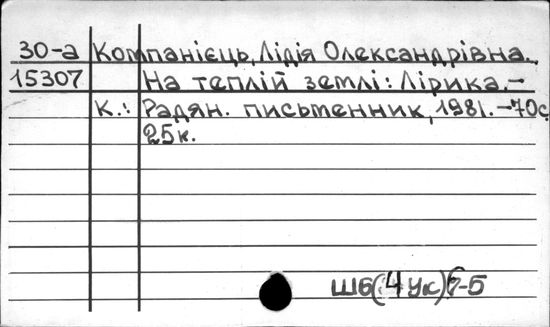 30-а Компанієць, Лідія Олександрівна.
15307 На теплій землі: Лірика.-
К.: Радян. письменник, 1981.-70с.
25к.
Ш6(4Ук)6-5